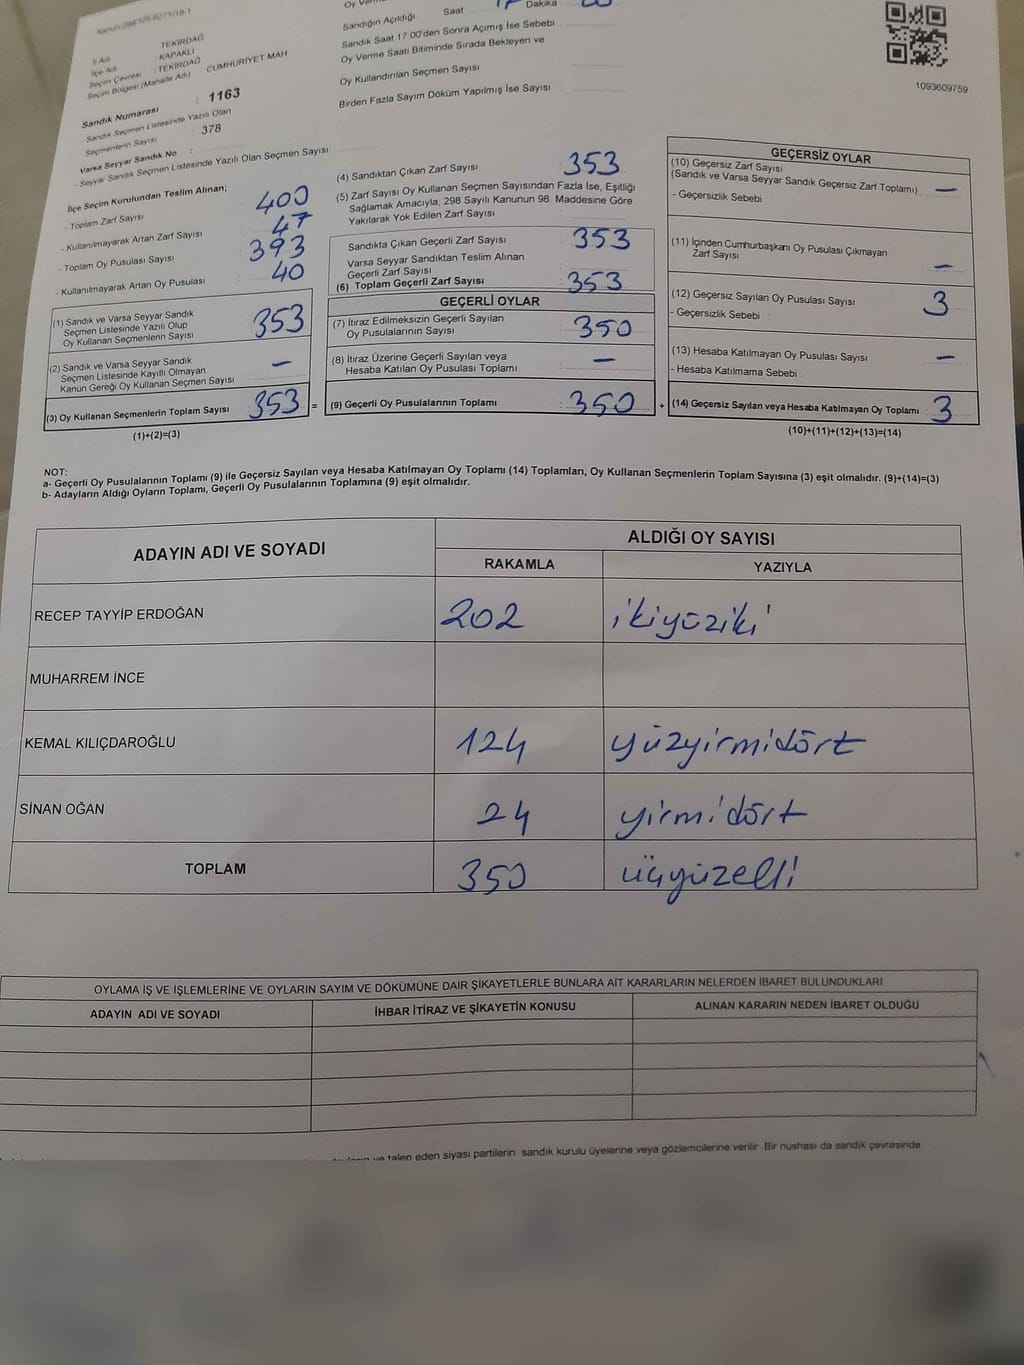 Kanun:298/105-6271/18-1
İl Adı : TEKİRDAĞ
İlçe Adı : KAPAKLI
Seçim Çevresi : TEKİRDAĞ
Seçim Bölgesi (Mahalle Adı) CUMHURİYET MAH
Sandık Numarası : 1163
- Sandık Seçmen Listesinde Yazılı Olan
Seçmenlerin Sayısı : 378
Varsa Seyyar Sandık No :
- Seyyar Sandık Listesinde Yazılı Olan Seçmen Sayısı:
İlçe Seçim Kurulundan Teslim Alınan;
- Toplam Zarf Sayısı 400
- Kullanılmayarak Artan Zarf Sayısı 47
- Toplam Oy Pusulası Sayısı 393
- Kullanılmayarak Artan Oy Pusulası 40
(1) Sandık ve Varsa Seyyar Sandık
Seçmen Listesinde Yazılı Olup
Oy Kullanan Seçmenlerin Sayısı 353
(2) Sandık ve Varsa Seyyar Sandık
Seçmen Listesinde Kayıtlı Olmayan
Kanun Gereği Oy Kullanan Seçmen Sayısı —
(3) Oy Kullanan Seçmenlerin Toplam Sayısı 353 =
(1)+(2)=(3)
Sandığın Açıldığı Saat 17 Dakika
Sandık Saat 17:00'den Sonra Açımış İse Sebebi
Oy Verme Saati Bitiminde Sırada Bekleyen ve
Oy Kullandırılan Seçmen Sayısı
Birden Fazla Sayım Döküm Yapılmış İse Sayısı
(4) Sandıktan Çıkan Zarf Sayısı 353
(5) Zarf Sayısı Oy Kullanan Seçmen Sayısından Fazla İse, Eşitliği
Sağlamak Amacıyla, 298 Sayılı Kanunun 98. Maddesine Göre
Yakılarak Yok Edilen Zarf Sayısı
Sandıkta Çıkan Geçerli Zarf Sayısı 353
Varsa Seyyar Sandıktan Teslim Alınan
Geçerli Zarf Sayısı
(6) Toplam Geçerli Zarf Sayısı 353
GEÇERLİ OYLAR
(7) İtiraz Edilmeksizin Geçerli Sayılan
Oy Pusulalarının Sayısı 350
(8) İtiraz Üzerine Geçerli Sayılan veya
Hesaba Katılan Oy Pusulası Toplamı —
(9) Geçerli Oy Pusulalarının Toplamı : 350 +
1093609759
GEÇERSİZ OYLAR
(10) Geçersiz Zarf Sayısı
(Sandık ve Varsa Seyyar Sandık Geçersiz Zarf Toplamı) —
- Geçersizlik Sebebi :
(11) İçinden Cumhurbaşkanı Oy Pusulası Çıkmayan
Zarf Sayısı —
(12) Geçersiz Sayılan Oy Pusulası Sayısı 3
- Geçersizlik Sebebi :
(13) Hesaba Katılmayan Oy Pusulası Sayısı —
- Hesaba Katılmama Sebebi :
(14) Geçersiz Sayılan veya Hesaba Katılmayan Oy Toplamı : 3
(10)+(11)+(12)+(13)=(14)
NOT:
a- Geçerli Oy Pusulalarının Toplamı (9) ile Geçersiz Sayılan veya Hesaba Katılmayan Oy Toplamı (14) Toplamları, Oy Kullanan Seçmenlerin Toplam Sayısına (3) eşit olmalıdır. (9)+(14)=(3)
b- Adayların Aldığı Oyların Toplamı, Geçerli Oy Pusulalarının Toplamına (9) eşit olmalıdır.
ADAYIN ADI VE SOYADI
ALDIĞI OY SAYISI
RAKAMLA YAZIYLA
RECEP TAYYİP ERDOĞAN 202 ikiyüziki
MUHARREM İNCE
KEMAL KILIÇDAROĞLU 124 yüzyirmidört
SİNAN OĞAN 24 yirmidört
TOPLAM 350 üçyüzelli
OYLAMA İŞ VE İŞLEMLERİNE VE OYLARIN SAYIM VE DÖKÜMÜNE DAİR ŞİKAYETLERLE BUNLARA AİT KARARLARIN NELERDEN İBARET BULUNDUKLARI
ADAYIN ADI VE SOYADI İHBAR İTİRAZ VE ŞİKAYETİN KONUSU ALINAN KARARIN NEDEN İBARET OLDUĞU
ve talep eden siyasi partilerin sandık kurulu üyelerine veya gözlemcilerine verilir. Bir nüshası da sandık çevresinde